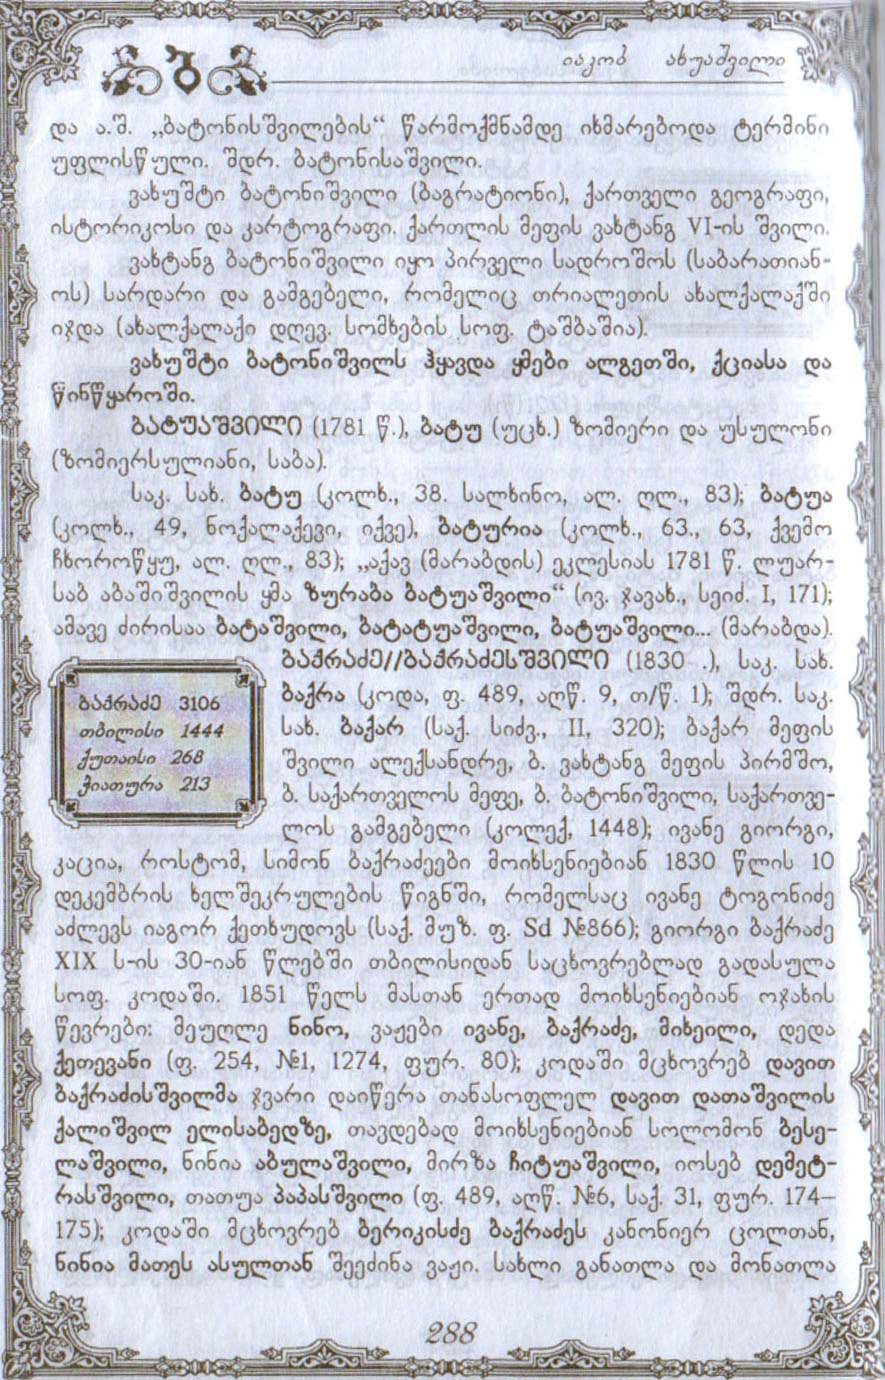 იაკობ ახუაშვილი
და ა.შ. „ბატონისშვილების“ წარმოქმნამდე იხმარებოდა ტერმინი
უფლისწული. შდრ. ბატონისაშვილი.
ვახუშტი ბატონიშვილი (ბაგრატიონი), ქართველი გეოგრაფი,
ისტორიკოსი და კარტოგრაფი, ქართლის მეფის ვახტანგ VI-ის შვილი.
ვახტანგ ბატონიშვილი იყო პირველი სადროშოს (საბარათიან-
ოს) სარდარი და გამგებელი, რომელიც თრიალეთის ახალქალაქში
იჯდა (ახალქალაქი დღევ. სომხების სოფ. ტაშბაშია).
ვახუშტი ბატონიშვილს ჰყავდა ყმები ალგეთში, ქციასა და
წინწყაროში.
ბატუაშვილი (1781 წ.), ბატუ (უცხ.) ზომიერი და უსულონი
(ზომიერსულიანი, საბა).
საკ. სახ. ბატუ (კოლხ., 38. სალხინო, ალ. ღლ., 83); ბატუა
(კოლხ., 49, ნოქალაქევი, იქვე), ბატურია (კოლხ., 63., 63, ქვემო
ჩხოროწყუ, ალ. ღლ., 83); „აქავ (მარაბდის) ეკლესიას 1781 წ. ლუარ-
საბ აბაშიშვილის ყმა ზურაბა ბატუაშვილი“ (ივ. ჯავახ., სეიძ. I, 171);
ამავე ძირისაა ბატაშვილი, ბატატუაშვილი, ბატუაშვილი... (მარაბდა).
ბაქრაძე//ბაქრაძესშვილი (1830 .), საკ. სახ.
ბაქრა (კოდა, ფ. 489, აღწ. 9, თ/წ. 1); შდრ. საკ.
სახ. ბაქარ (საქ. სიძვ., II, 320); ბაქარ მეფის
შვილი ალექსანდრე, ბ. ვახტანგ მეფის პირმშო,
ბ. საქართველოს მეფე, ბ. ბატონიშვილი, საქართვე-
ლოს გამგებელი (კოლექ, 1448); ივანე გიორგი,
ბაქრაძე 3106
თბილისი 1444
ქუთაისი 268
ჭიათურა 213
კაცია, როსტომ, სიმონ ბაქრაძეები მოიხსენიებიან 1830 წლის 10
დეკემბრის ხელშეკრულების წიგნში, რომელსაც ივანე ტოგონიძე
აძლევს იაგორ ქეთხუდოვს (საქ. მუზ. ფ. Sd №866); გიორგი ბაქრაძე
XIX ს-ის 30-იან წლებში თბილისიდან საცხოვრებლად გადასულა
სოფ. კოდაში. 1851 წელს მასთან ერთად მოიხსენიებიან ოჯახის
წევრები: მეუღლე ნინო, ვაჟები ივანე, ბაქრაძე, მიხეილი, დედა
ქეთევანი (ფ. 254, №1, 1274, ფურ. 80); კოდაში მცხოვრებ დავით
ბაქრაძისშვილმა ჯვარი დაიწერა თანასოფლელ დავით დათაშვილის
ქალიშვილ ელისაბედზე, თავდებად მოიხსენიებიან სოლომონ ბესე-
ლაშვილი, ნინია აბულაშვილი, მირზა ჩიტუაშვილი, იოსებ დემეტ-
რასშვილი, თათუა პაპასშვილი (ფ. 489, აღწ. №6, საქ. 31, ფურ. 174–
175); კოდაში მცხოვრებ ბერიკისძე ბაქრაძეს კანონიერ ცოლთან,
ნინია მათეს ასულთან შეეძინა ვაჟი. სახლი განათლა და მონათლა
288